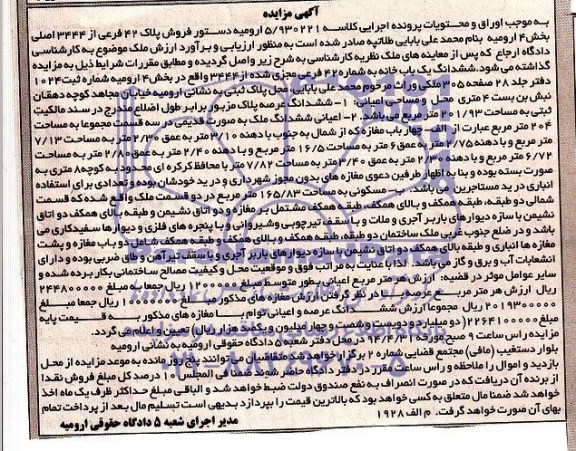 آگهی مزایده
به موجب اوراق و محتویات پرونده اجرایی کلاسه ۵/۹۳۰۲۲۱ ارومیه دستور فروش پلاک ۴۲ فرعی از ۳۴۴۴ اصلی
بخش ۴ ارومیه بنام محمد علی بابایی طلاتپه صادر شده است به منظور ارزیابی و برآورد ارزش ملک موضوع به کارشناسی
دادگاه ارجاع که پس از معاینه های ملک نظریه کارشناسی به شرح زیر واصل گردیده و مطابق مقررات شرایط ذیل به مزایده
گذاشته می شود. ششدانگ یک باب خانه به شماره ۴۲ فرعی مجزی شده از ۳۴۴۴ واقع در بخش ۴ ارومیه شماره ثبت ۱۰۲۴
دفتر جلد ۲۸ صفحه ۳۰۵ ملکی وراث مرحوم محمد علی بابایی، محل پلاک ثبتی به نشانی ارومیه خیابان مجاهد کوچه دهقان
نبش بن بست ۴ متری محل و مساحی اعیانی: ۱- ششدانگ عرصه پلاک مزبور برابر طول اضلاع مندرج در سند مالکیت
ثبتی به مساحت ۲۰۱/۹۳ متر مربع می باشد. ۲- اعیانی ششدانگ ملک به صورت قدیمی در سه قسمت مجموعا به مساحت
۲۰۴ متر مربع عبارت از الف- چهار باب مغازه که از شمال به جنوب با دهنه ۳/۱۰ متر به عمق ۲/۳۰ متر به مساحت ۷/۱۳
متر مربع و با دهنه ۲/۷۵ متر به عمق ۶ متر به مساحت ۱۶/۵ متر مربع و با دهنه ۲/۴۰ متر به عمق ۲/۸۰ متر به مساحت
۶/۷۲ متر مربع و با دهنه ۲/۳۰ متر به عمق ۳/۴۰ متر به مساحت ۷/۸۲ متر با محافظ کرکره ای محدود به کوچه ۸ متری به
صورت بسته بوده و بنا به اظهار طرفین دعوی مغازه های بدون مجوز شهرداری و در ید خودشان بوده و تعدادی برای استفاده
انباری در ید مستاجرین می باشد. ب- مسکونی به مساحت ۱۶۵/۸۳ متر مربع در دو قسمت ملک واقع شده که قسمت
شمالی دو طبقه، طبقه همکف و بالای همکف، طبقه همکف مشتمل بر مغازه و دو اتاق نشیمن و طبقه بالای همکف دو اتاق
نشیمن با سازه دیوارهای باربر آجری و ملات و با سقف تیرچوبی وشیروانی و با پنجره های فلزی و دیوارها سفیدکاری می
باشد و در ضلع جنوب غربی ملک ساختمان دو طبقه، طبقه همکف و بالای همکف و طبقه همکف شامل دو باب مغازه و پشت
مغازه ها انباری و طبقه بالای همکف دو اتاق نشیمن با سازه دیوارهای باربر آجری و با سقف تیرآهن و طاق ضربی بوده و دارای
انشعابات آب و برق و گاز می باشد. لذا با عنایت به مراتب فوق و موقعیت محل و کیفیت مصالح ساختمانی بکار برده شده و
سایر عوامل موثر در قضیه: ارزش هر متر مربع اعیانی بطور متوسط مبلغ ۱۲۰۰۰۰۰ ریال جمعا به مبلغ ۲۴۴۸۰۰۰۰۰
ریال ارزش هر متر مربع عرصه با در نظر گرفتن ارزش مغازه های مذکور مبلغ ریال جمعا مبلغ
۲۰۱۹۳۰۰۰۰۰ ریال مجموعا ارزش ششدانگ عرصه و اعیانی توام با مغازه های مذکور به قیمت پایه
مبلغ ۲۲۶۴۱۰۰۰۰۰ (دو میلیارد و دویست و شصت و چهار میلیون و یکصد هزار ریال) تعیین و اعلام می گردد.
مزایده راس ساعت ۹ صبح مورخه ۹۴/۴/۳۱ در محل دفتر شعبه ۵ دادگاه حقوقی ارومیه به نشانی ارومیه
بلوار دستغیب (مافی) مجتمع قضایی شماره ۲ برگزار خواهد شد متقاضیان می توانند پنج روز مانده به موعد مزایده از محل
بازدید و اموال را ملاحظه و راس ساعت مقرر در دفتر دادگاه حاضر شوند. ضمنا فی المجلس ۱۰ درصد کل مبلغ فروش نقدا
از برنده آن دریافت که در صورت انصراف به نفع صندوق دولت ضبط خواهد شد و الباقی مبلغ حداکثر ظرف یک ماه اخذ
خواهد شد ضمنا مال متعلق به کسی خواهد بود که بالاترین قیمت را بپردازد بدیهی است تسلیم مال بعد از پرداخت تمام
بهای آن صورت خواهد گرفت. م الف ۱۹۲۸
مدیر اجرای شعبه ۵ دادگاه حقوقی ارومیه